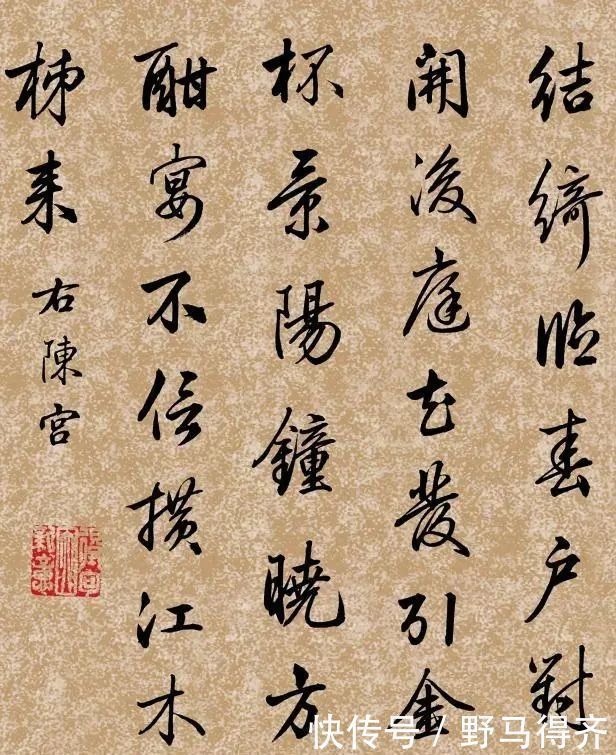 結綺臨春戶對
開後庭花發引金
杯景陽鐘曉方
酣宴不信橫江木
柹来 右陳宮
快传号 / 野马得齐